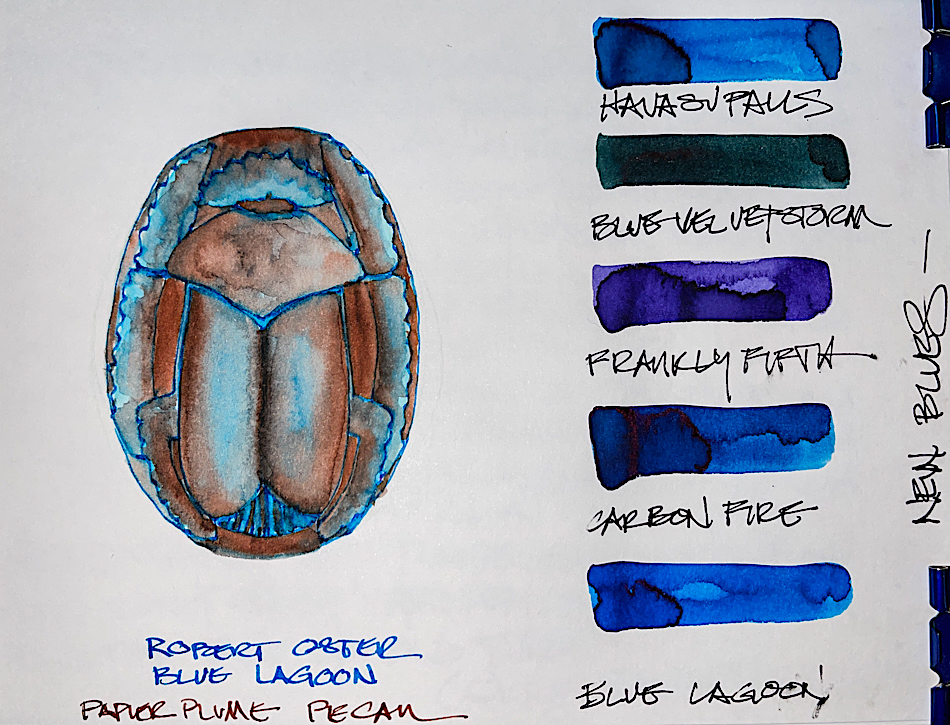 HAVASU FALLS
BLUE VELVET STORM
FRANKLY FIFTH
CARBON FIRE
BLUE LAGOON
NEW BLUES —
ROBERT OSTER
BLUE LAGOON
PAPIER PLUME PECAN